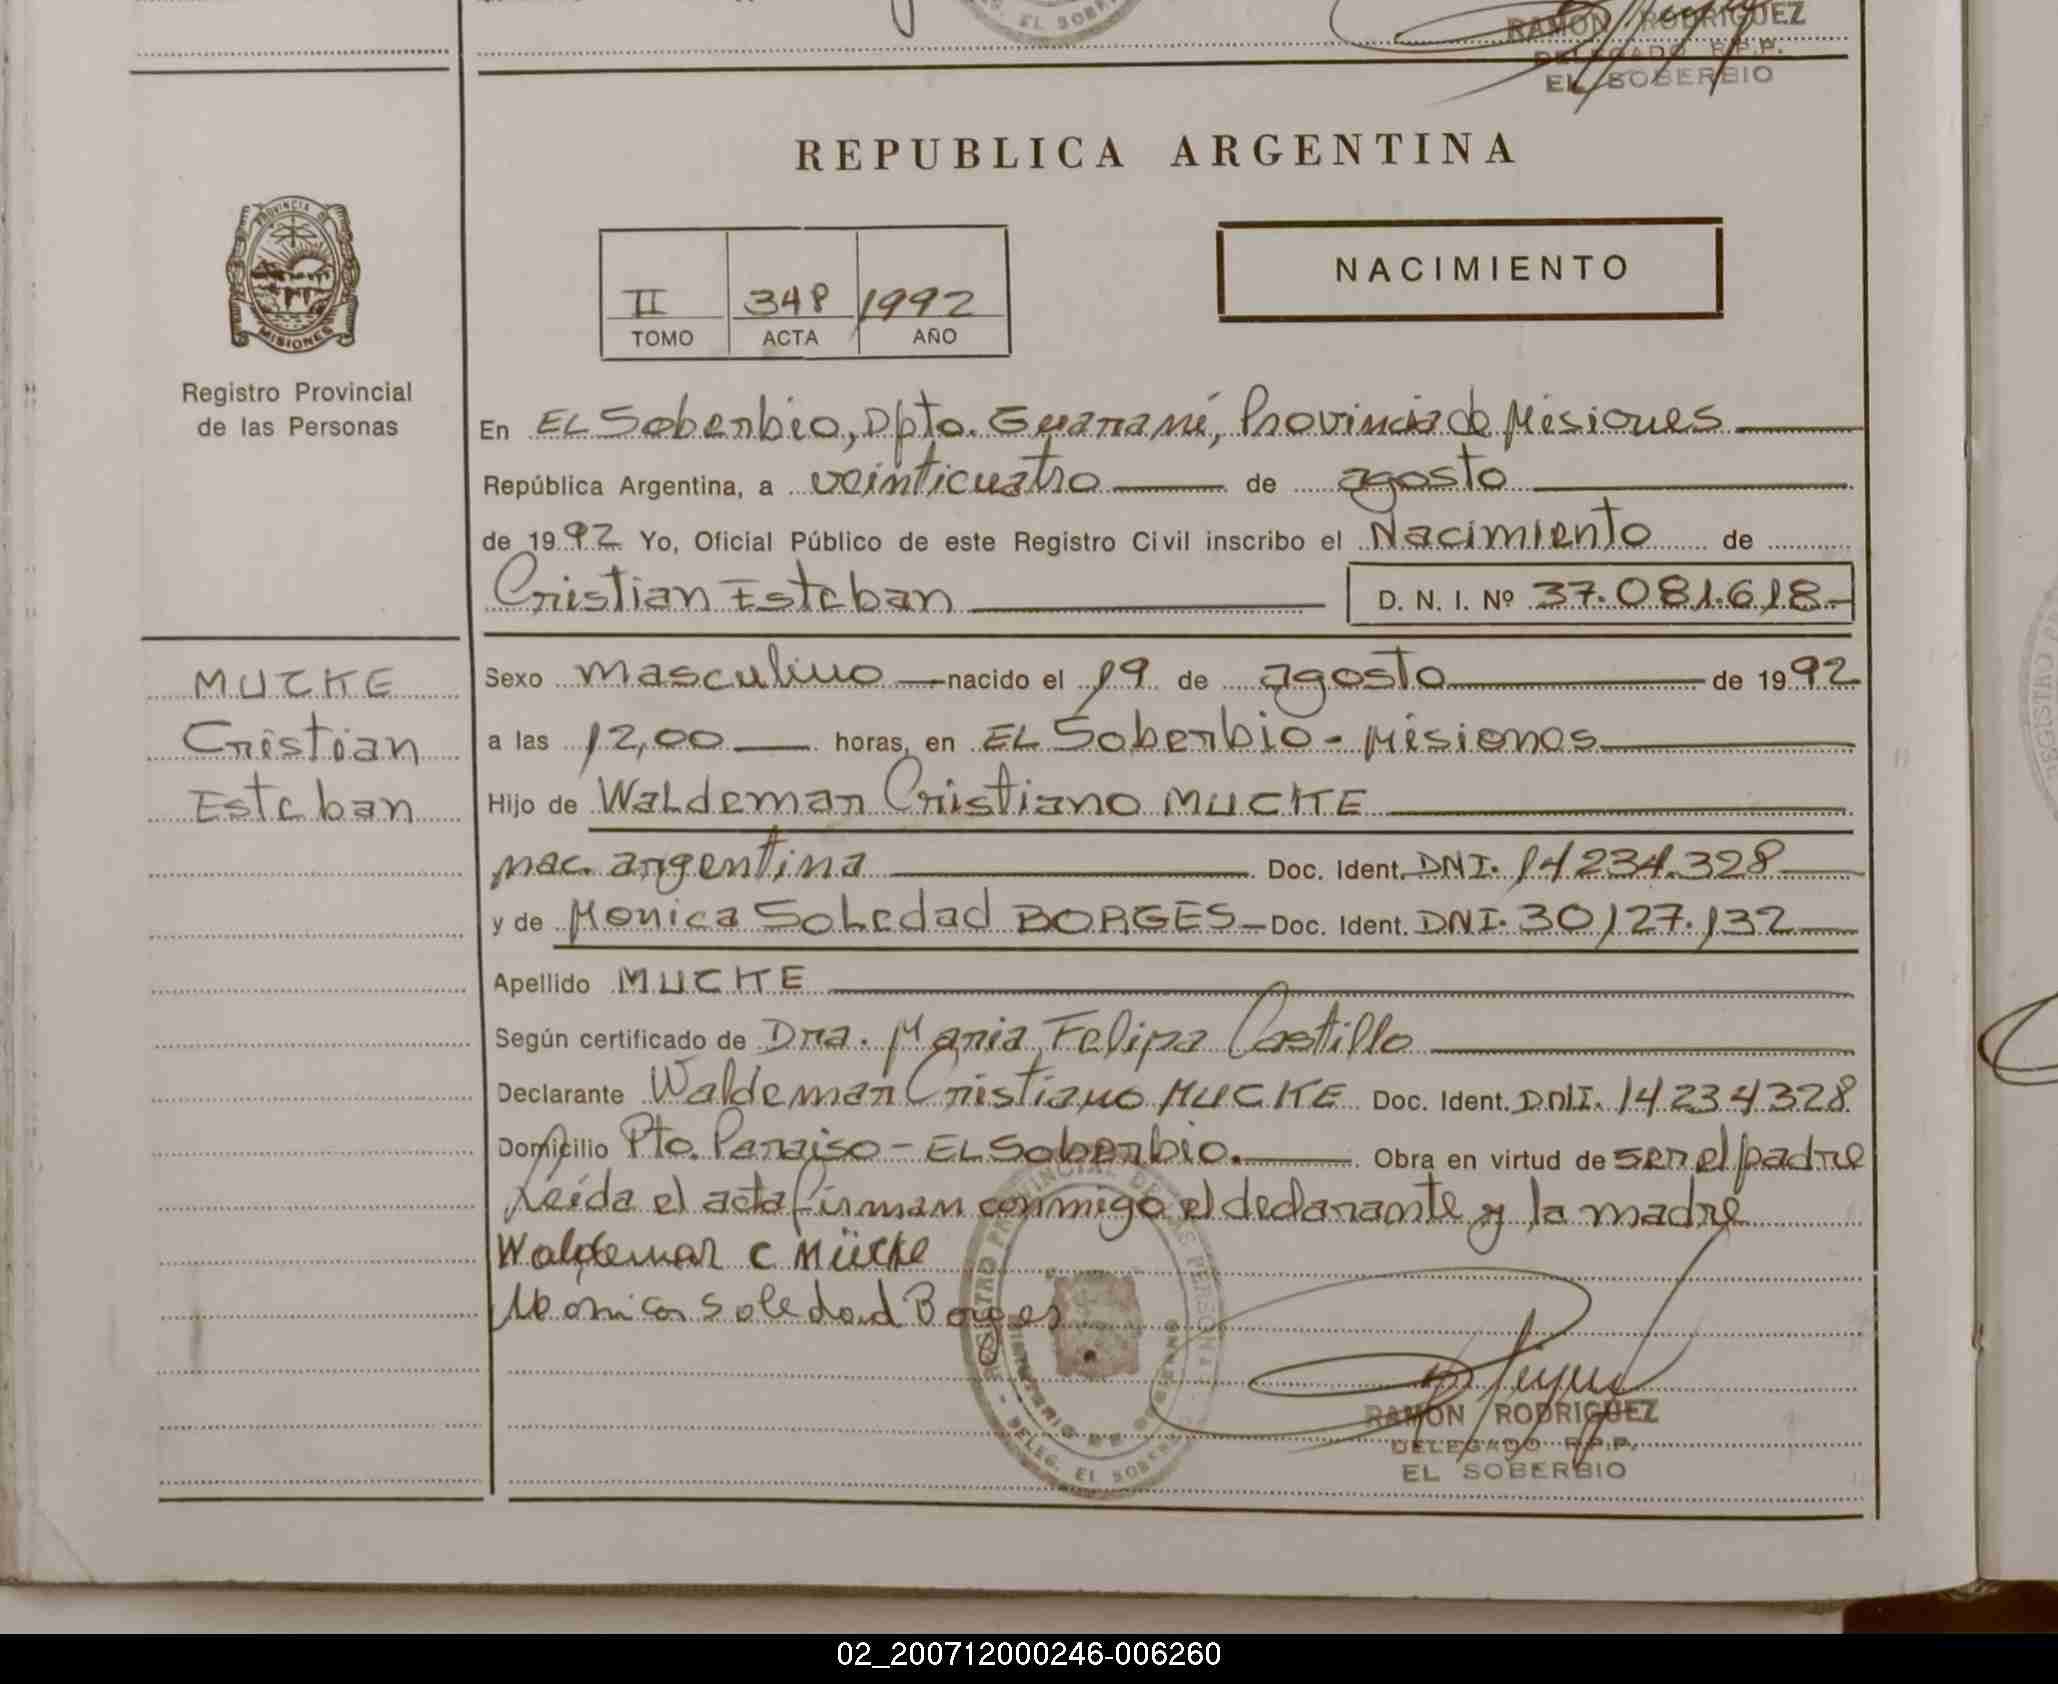 EL SOBER
RAMON RODRIGUEZ
DELEGADO R.P.P.
EL SOBERBIO
REPUBLICA ARGENTINA
PROVINCIA DE
MISIONES
Registro Provincial
de las Personas
II 348 1992
TOMO ACTA AÑO
NACIMIENTO
En EL Soberbio, Dpto. Guaraní, Provincia de Misiones
República Argentina, a veinticuatro de agosto
de 1992 Yo, Oficial Público de este Registro Civil inscribo el Nacimiento de
Cristian Esteban D. N. I. Nº 37.081.618-
MUCKE
Cristian
Esteban
Sexo masculino nacido el 19 de agosto de 1992
a las 12,00 horas, en EL Soberbio - Misiones
Hijo de Waldemar Cristiano MUCKE
nac. argentina Doc. Ident. DNI. 14234.328
y de Monica Soledad BORGES - Doc. Ident. DNI. 30127.132
Apellido MUCKE
Según certificado de Dra. Maria Felipa Castillo
Declarante Waldemar Cristiano MUCKE Doc. Ident. DNI. 14234328
Domicilio Pto. Paraiso - EL Soberbio. Obra en virtud de ser el padre
Leída el acta firman conmigo el declarante y la madre
Waldemar C Mücke
Monica Soledad Borges
REGISTRO PROVINCIAL DE LAS PERSONAS
MINISTERIO DE GOBIERNO
- DELEG. EL SOBERBIO
RAMON RODRIGUEZ
DELEGADO R.P.P.
EL SOBERBIO
02_200712000246-006260